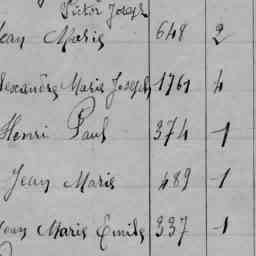 Victor Joseph
Jean Marie 648 2
Alexandre Marie Joseph 1761 4
Henri Paul 374 1
Jean Marie 489 1
Jean Marie Emile 337 1